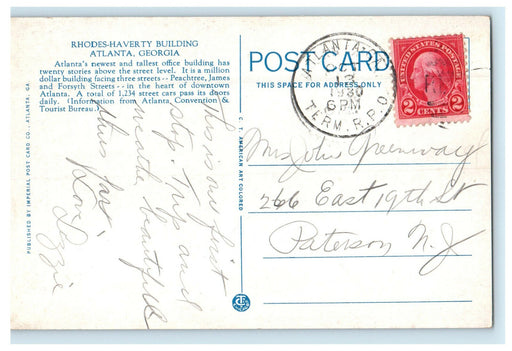 RHODES-HAVERTY BUILDING
ATLANTA, GEORGIA
Atlanta's newest and tallest office building has
twenty stories above the street level. It is a million
dollar building facing three streets -- Peachtree, James
and Forsyth Streets -- in the heart of downtown
Atlanta. A total of 1,234 street cars pass its doors
daily. (Information from Atlanta, Convention &
Tourist Bureau.)
PUBLISHED BY IMPERIAL POST CARD CO., ATLANTA, GA.
This is our first
stop. Trip and
weather beautiful
thus far.
Love Lizzie
C. T. AMERICAN ART COLORED
POST CARD
THIS SPACE FOR ADDRESS ONLY
ATLANTA
13
1930
6PM
TERM. R.P.O.
UNITED STATES POSTAGE
2 CENTS 2
Mrs John Greenway
266 East 19th St
Paterson N.J.